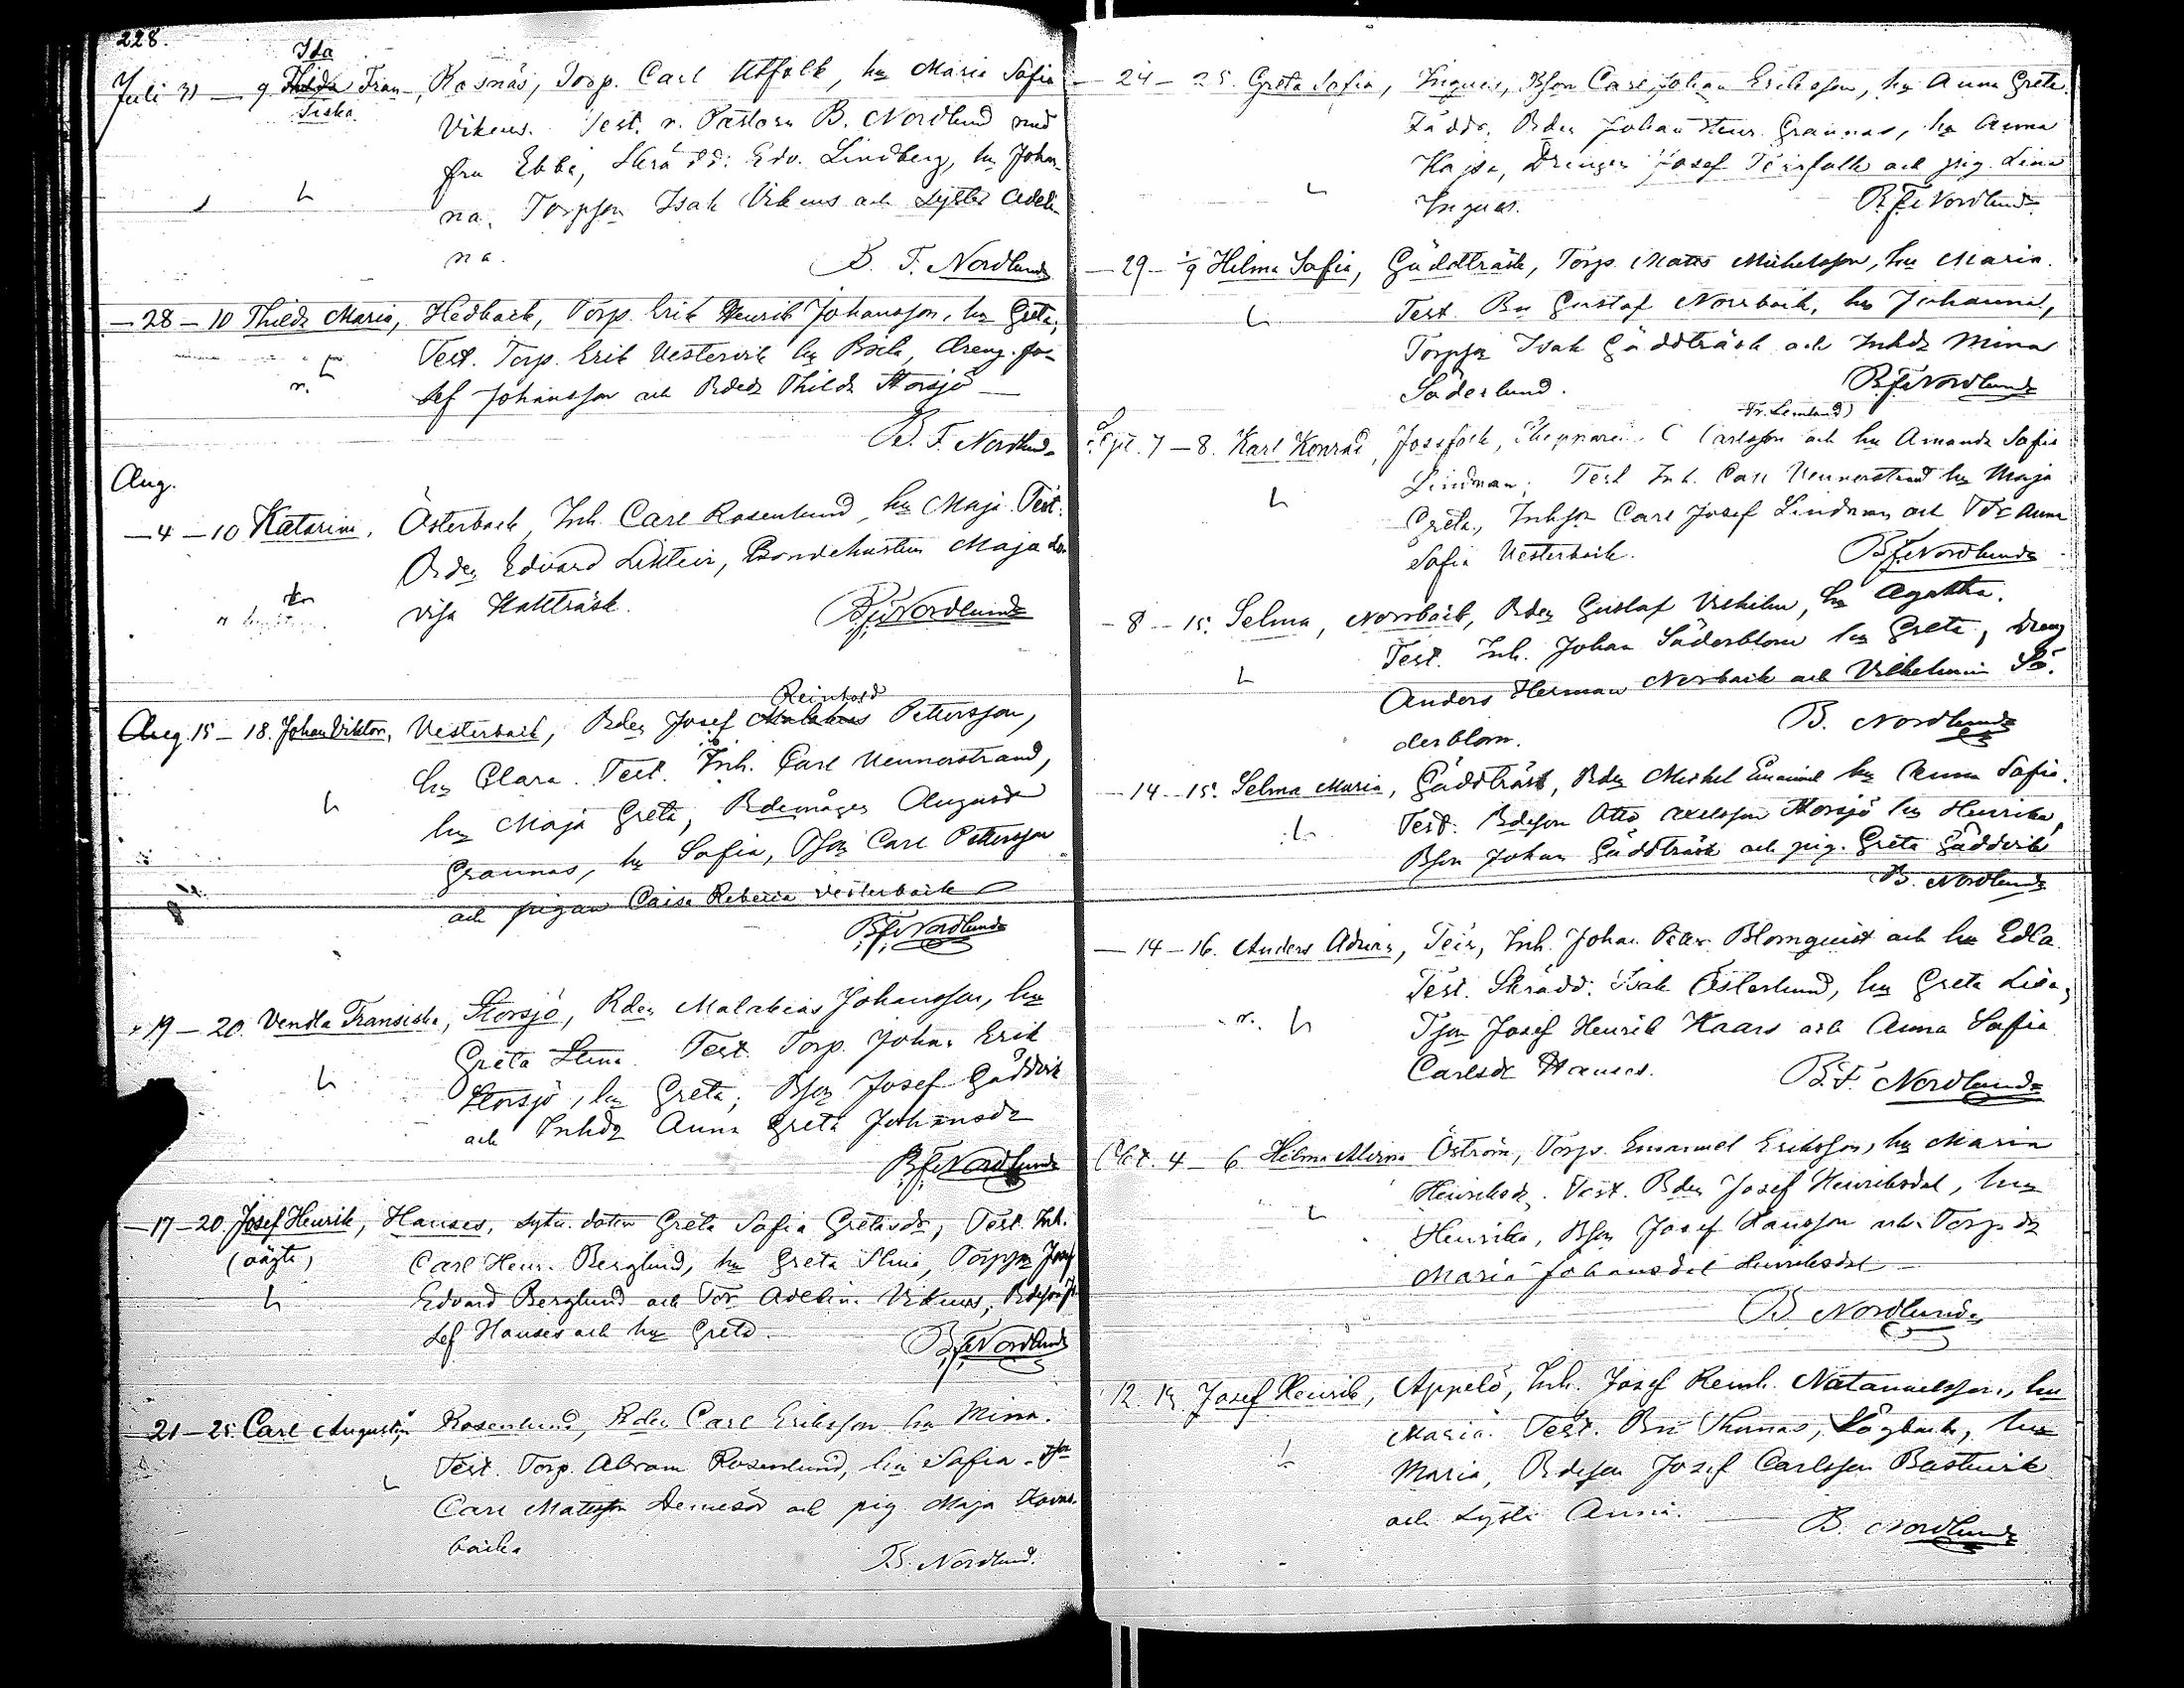 228.
Ida
Juli 31 — 9 Thilda Fran-, Rosnäs, Torp. Carl Utfolk, hu Maria Sofia
siska. Vikeus. Test. v. Pastorn B. Nordlund med
fru Ebba, Skrädd: Edv. Lindberg, hu Johan-
na, Torpson Isak Vikeus och Syster Adeli-
na. B. F. Nordlund
— 28 — 10 Thilda Maria, Hedback, Torp. Erik Henrik Johansson, hu Greta,
Test. Torp. Erik Vestervik hu Brita, dreng. Jo-
sef Johansson och Bdedr Thilda Storsjö —
B. F. Nordlund
Aug.
— 4 — 10 Katarina, Österback, Inh. Carl Rosenlund, hu Maja. Test.
Bden Edvard, Bondehustrun Maja Lo-
visa Kaltträsk. B. F. Nordlund
Reinhold
Aug. 15 — 18. Johan Viktor, Vesterback, Bden Josef Malakias Pettersson,
hu Clara. Test. Inh. Carl Vennerstrand,
hu Maja Greta, Bdemågen August
Grannas, hu Sofia, Tson Carl Pettersson
och pigan Caisa Rebecca Vesterback
B. F. Nordlund
19 — 20. Vendla Fransiska, Storsjö, Bden Malakias Johansson, hu
Greta Stina. Test. Torp. Johan Erik
Storsjö, hu Greta; Bson Josef Gäddvik
och Inhdr Anna Greta Johansdr
B. F. Nordlund
— 17 — 20. Josef Henrik, Hanses, dotter Greta Sofia Gretasdr, Test. Inh.
(oägta) Carl Henr. Berglund, hu Greta Stina, Torpson Josef
Edvard Berglund och Tdr Adelina Vikeus, Bdeson Jo-
sef Hanses och hu Greta. B. F. Nordlund
21 — 25. Carl Augustin, Rosenlund, Bden Carl Eriksson hu Mina.
Test. Torp. Abram Rosenlund, hu Sofia. Tson
Carl Matsson och pig. Maja
backa B. Nordlund.
— 24 — 25. Greta Sofia, Ingves, Bson Carl Johan Eriksson, hu Anna Greta.
Fadd. Bden Johan Henr. Grannas, hu Anna
Kajsa, Drengen Josef Teirfolk och pig. Lina
Ingves. B. F. Nordlund
— 29 — 1/9 Hilma Sofia, Gäddträsk, Torp. Matts Mickelsson, hu Maria.
Test. Bn Gustaf Norrback, hu Johanna,
Torpson Isak Gäddträsk och Inhdr Mina
Söderlund. B. F. Nordlund
fr. Lemland)
Sept. 7 — 8. Karl Konrad, Jossfolk, Skepparen C Carlsson och hu Amanda Sofia
Lindman; Test Inh. Carl Vennerstrand hu Maja
Greta, Inhson Carl Josef Lindman och Tdr Anna
Sofia Vesterback. B. F. Nordlund
— 8 — 15. Selma, Norrback, Bden Gustaf Vilhelm, hu Agatha.
Test. Inh. Johan Söderblom hu Greta, dreng
Anders Herman Norback och Vilhelmina Sö-
derblom. B. Nordlund
— 14 — 15. Selma Maria, Gäddträsk, Bden Mickel Emanuel hu Anna Sofia.
Test. Bdeson Otto Axelsson Storsjö hu Henrika,
Bson Johan Gäddträsk och pig. Greta Gäddvik
B. Nordlund
— 14 — 16. Anders Adrian, Teir, Inh. Johan Peter Blomquist och hu Edla.
Test. Skrädd. Isak Österlund, hu Greta Lisa,
Tson Josef Henrik Kaars och Anna Sofia
Carlsdr Hanses. B. F. Nordlund
Oct. 4 — 6 Hilma Alvina Öström, Torp. Emanuel Eriksson, hu Maria
Henriksdr. Test. Bden Josef Henriksdal, hu
Henrika, Bson Josef Hansson och Torpdr
Maria Johansdal Henriksdal —
B Nordlund
12. 19. Josef Henrik, Appelö, Inh. Josef Reinh. Natanaelsson, hu
Maria. Test. Bn Thomas, Lögback, hu
Maria, Bdeson Josef Carlsson Bastuvik
och Syster Anna. B. Nordlund